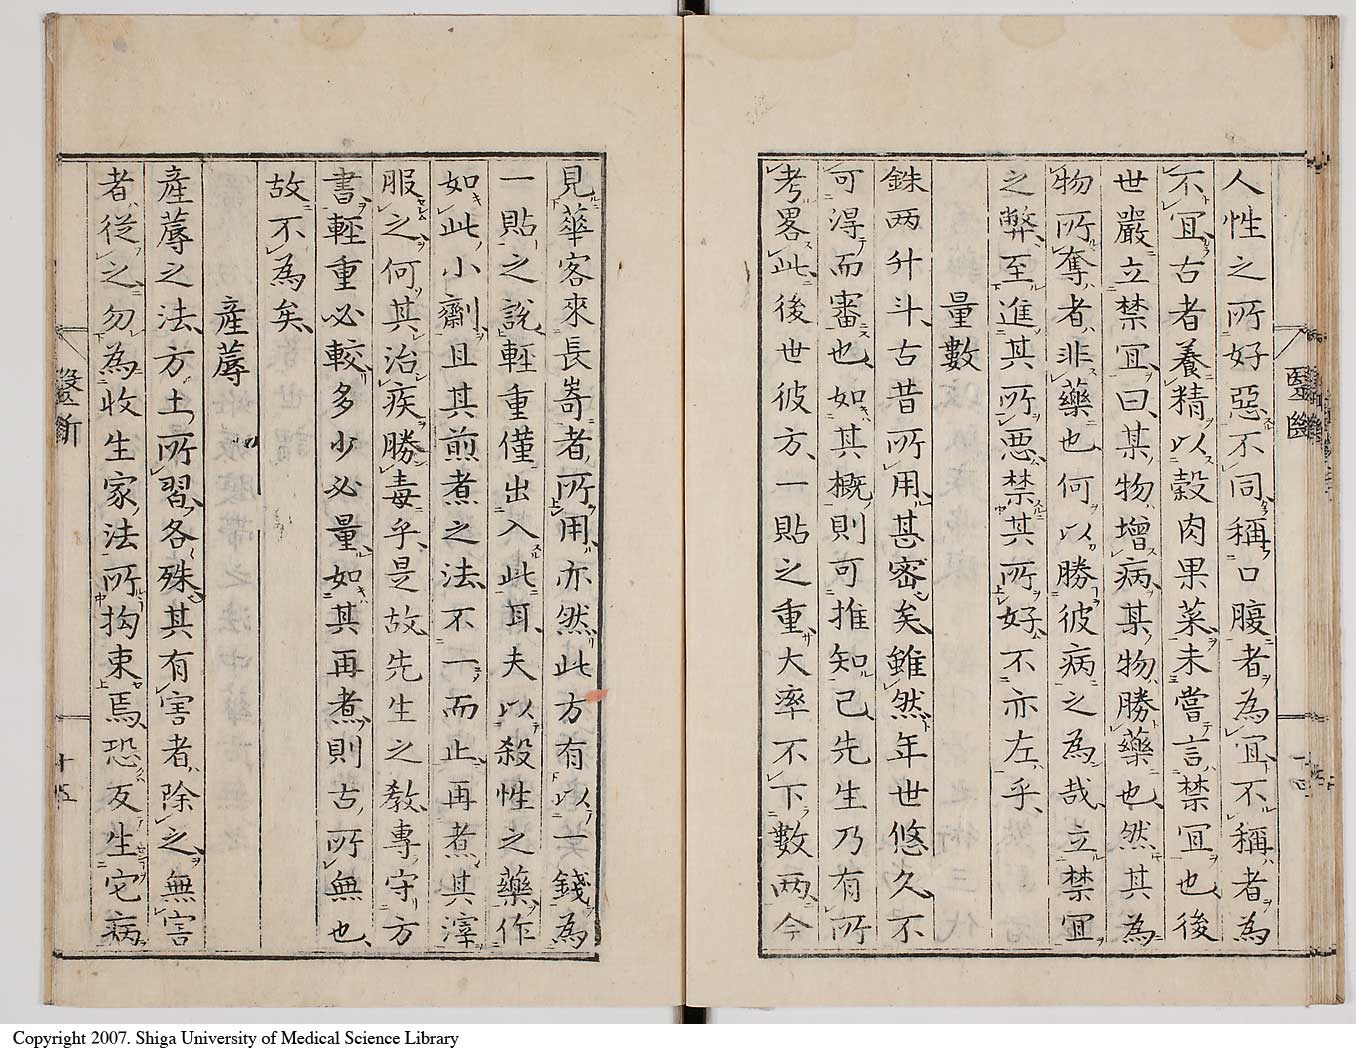 人性之所好惡不同稱口腹者為冝不稱者為
不冝古者養精以穀肉果菜未嘗言禁冝也後
世嚴立禁冝曰某物增病某物勝藥也然其為
物所奪者非藥也何以勝彼病之為哉立禁冝
之弊至進其所悪禁其所好不亦左乎
量數
銖两升斗古昔所用甚密矣雖然年世悠久不
可淂而審也如其概則可推知已先生乃有所
考畧此後世彼方一貼之重大率不下數两今
見華客來長嵜者所用亦然此方有以一錢為
一貼之說輊重僅出入此耳夫以殺性之藥作
如此小劑且其煎煮之法不一而止再煮其滓
服之何其治疾勝毒乎是故先生之敎專守方
書輊重必較多少必量如其再煮則古所無也
故不為矣
產蓐
產蓐之法方土所習各殊其有害者除之無害
者從之勿為收生家法所拘束焉恐反生它病
醫斷
十五
Copyright 2007. Shiga University of Medical Science Library